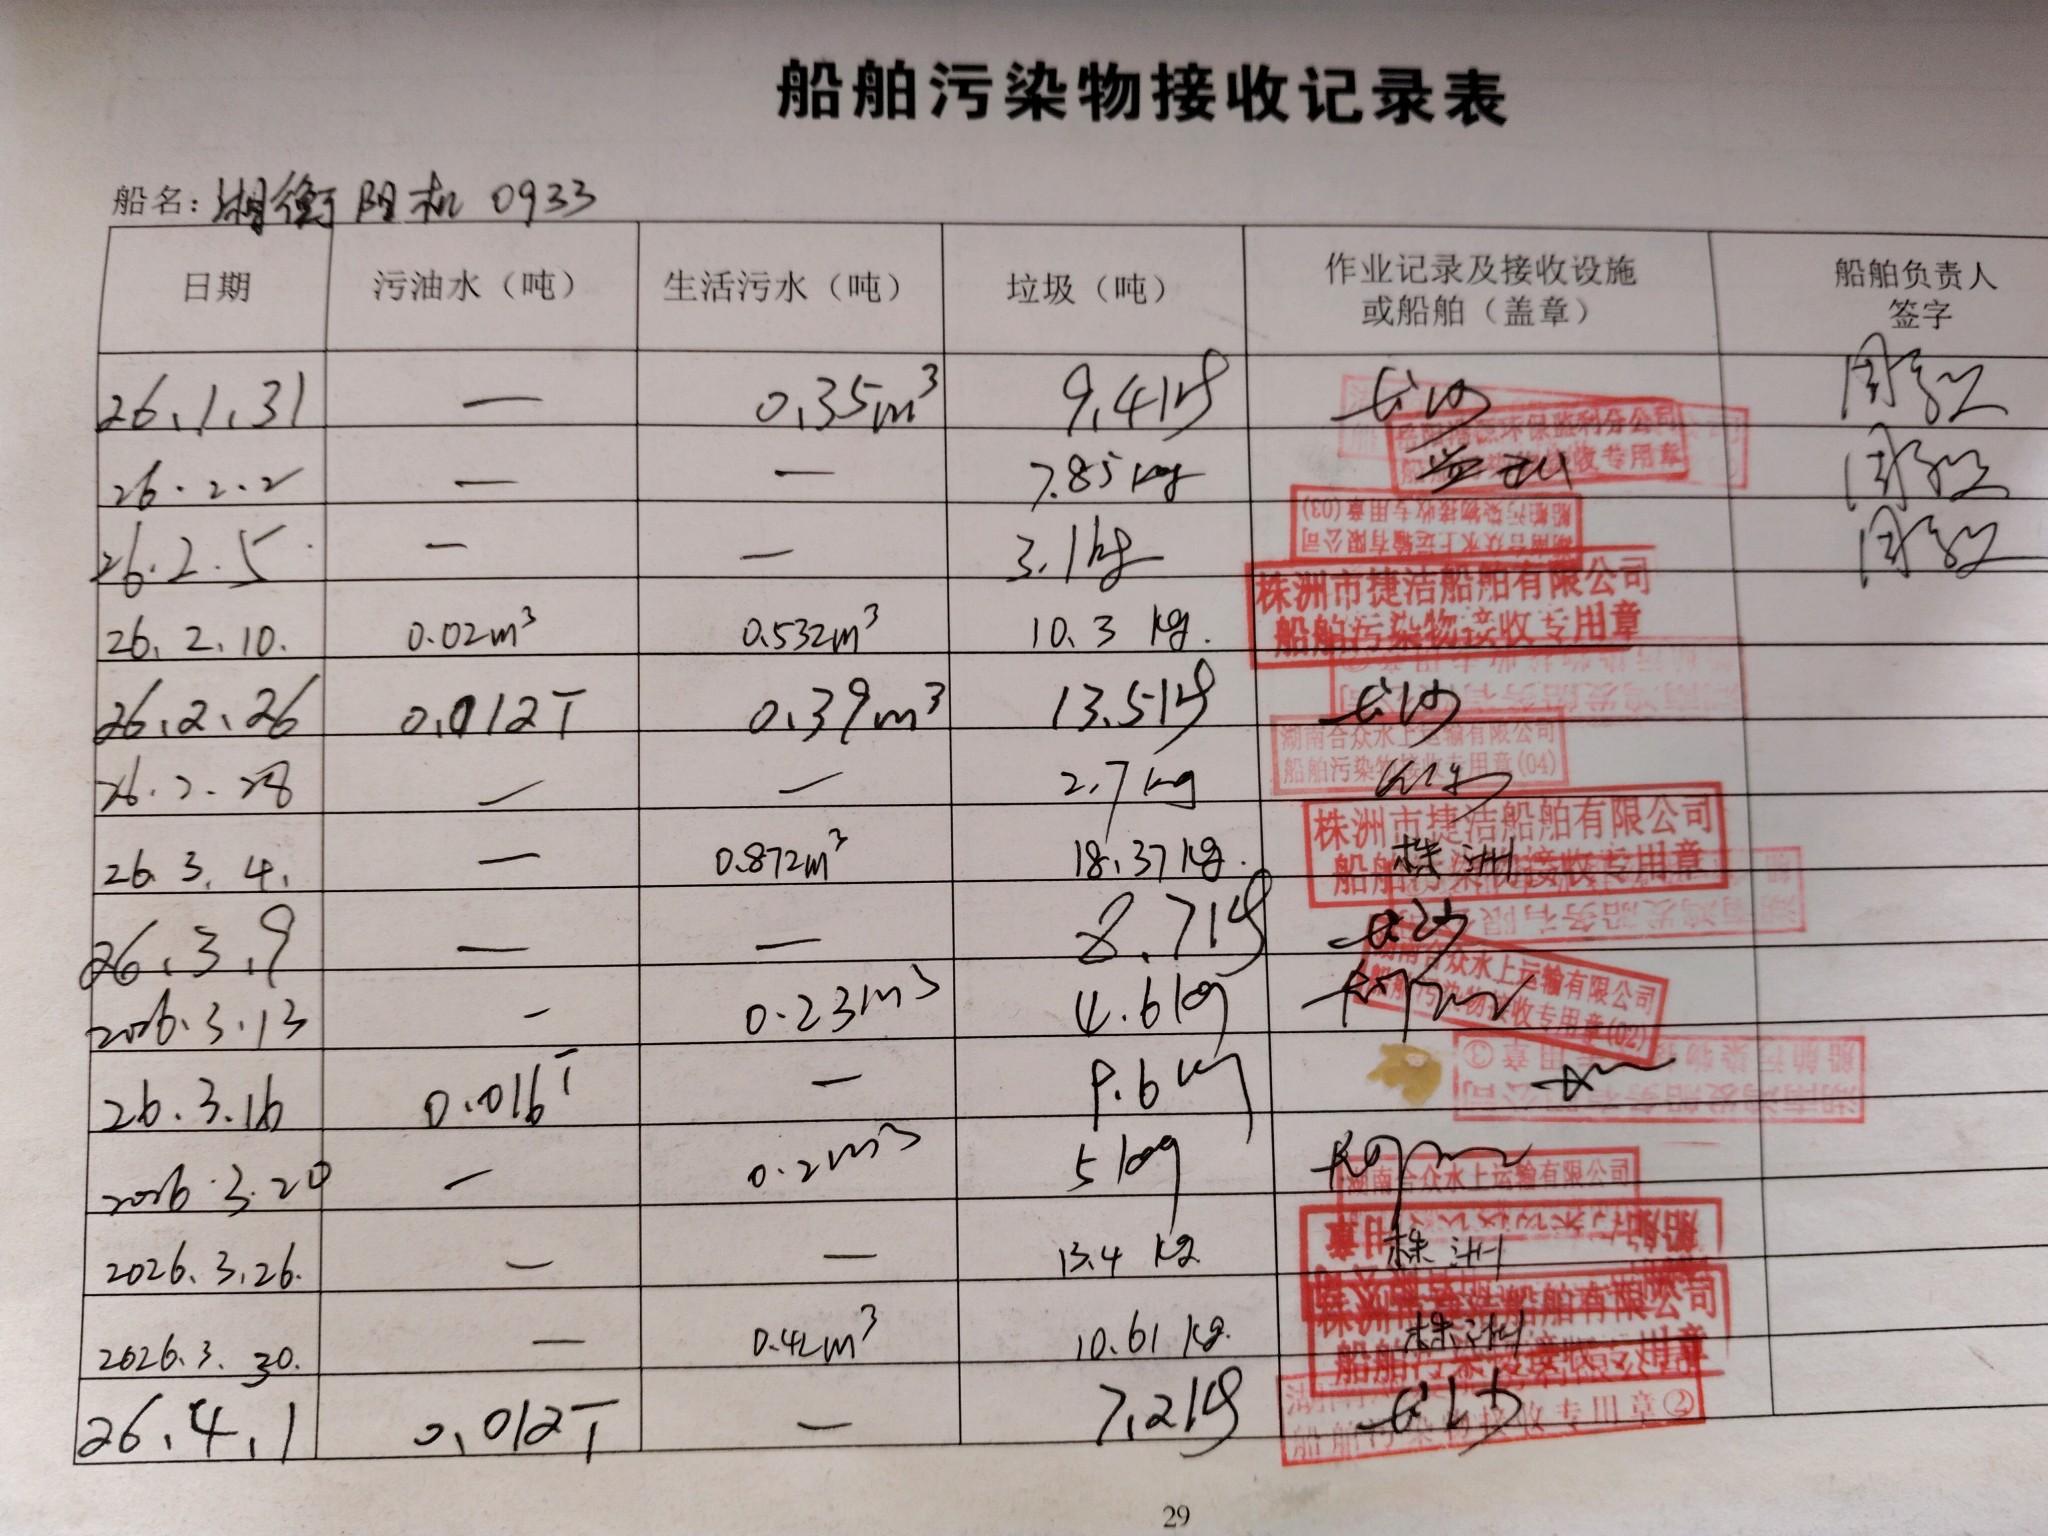 船舶污染物接收记录表
船名: 湘衡阳机 0933
日期 污油水（吨） 生活污水（吨） 垃圾（吨） 作业记录及接收设施或船舶（盖章） 船舶负责人签字
26.1.31 — 0.35m³ 9.4kg 长沙
26.2.2 — — 7.85kg 监利
岳阳 环保监利分公司
船 接收专用章
26.2.5 — — 3.1kg
湖南合众水上运输有限公司
船舶污染物接收专用章(03)
26.2.10. 0.02m³ 0.532m³ 10.3 kg.
株洲市捷洁船舶有限公司
船舶污染物接收专用章
26.2.26 0.012T 0.39m³ 13.5kg 长沙
26.2.28 — — 2.7kg
湖南合众水上运输有限公司
船舶污染物接收专用章(04)
26.3.4. — 0.872m³ 18.37kg. 株洲
株洲市捷洁船舶有限公司
船舶污染物接收专用章
26.3.9 — — 8.7kg 长沙
2026.3.13 - 0.23m³ 4.6kg
湖南合众水上运输有限公司
船舶污染物接收专用章(02)
26.3.16 0.016T — 9.6kg
湖南鸿发船务有限公司
船舶污染物接收专用章③
2026.3.20 — 0.2m³ 5kg
湖南合众水上运输有限公司
2026.3.26. — — 13.4 kg 株洲
2026.3.30. — 0.42m³ 10.61 kg. 株洲
株洲市捷洁船舶有限公司
船舶污染物接收专用章
26.4.1 0.012T — 7.2kg 长沙
船舶污染物接收专用章②
29